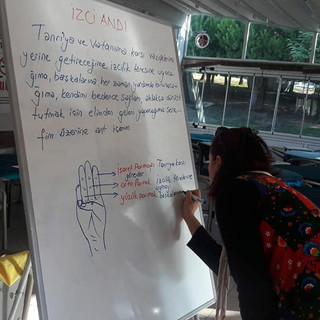 İZCİ ANDI
Tanrıya ve Vatanıma karşı vazifelerimi
yerine getireceğime, izcilik töresine uyaca-
ğıma, başkalarına her zaman yardımda bulunaca-
ğıma, kendimi bedence sağlam, ahlakça dürüst
tutmak için elimden geleni yapacağıma Şere-
fim üzerine ant içerim
işaret Parmağı Tanrıya karşı
görevler
orta Parmak izcilik töresine
uymayı
yüzük parmak başkalarına